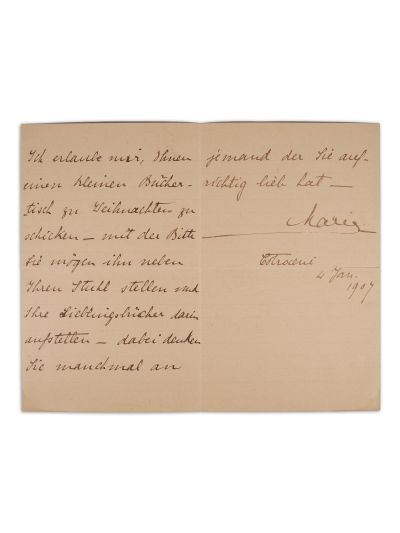 Ich erlaube mir, Ihnen
einen kleinen Bücher-
tisch zu Weihnachten zu
schicken – mit der Bitte
Sie mögen ihn neben
Ihren Stuhl stellen und
Ihre Lieblingsbücher darin
aufstellen – dabei denken
Sie manchmal an
jemand der Sie auf-
richtig lieb hat –
Marie
Cotroceni
4 Jan.
1907